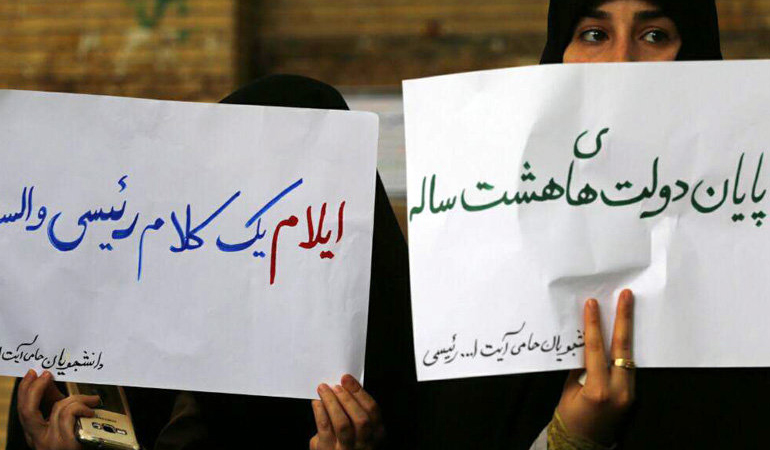 پایان دولت های هشت ساله
شجویان حامی آیت ا... رئیسی
ایلام یک کلام رئیسی والس
دانشجویان حامی آیت ا